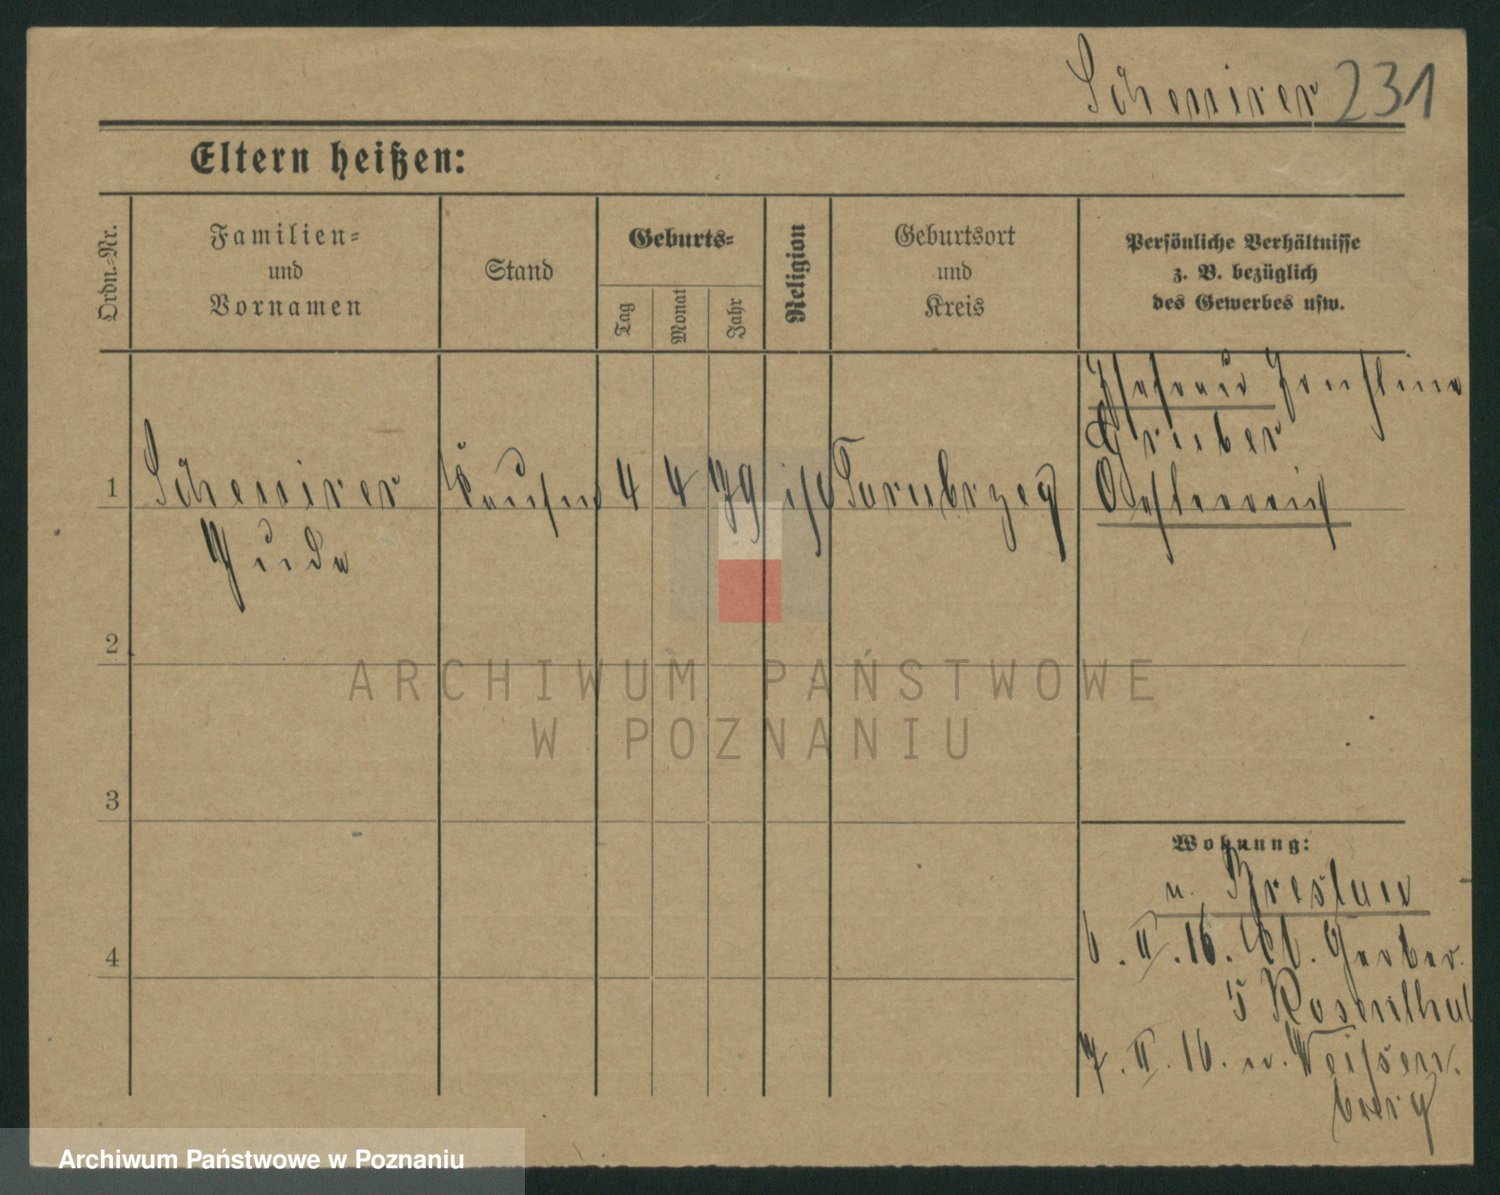 Schemirer 231
Eltern heißen:
Ordn.-Nr.
Familien-
und
Vornamen
Stand
Geburts-
Tag
Monat
Jahr
Religion
Geburtsort
und
Kreis
Persönliche Verhältnisse
z. B. bezüglich
des Gewerbes usw.
Ehefrau
Gruber
Oesterreich
1 Schemirer Kaufm 4 4 79 isr Tarnbrzeg
Juda
2
3
4
Wohnung:
n. Breslau
6. II. 16. Kl. Gerber
5 Rosenthal
7. II. 16. n. Weißen-
berg
ARCHIWUM PAŃSTWOWE
W POZNANIU
Archiwum Państwowe w Poznaniu